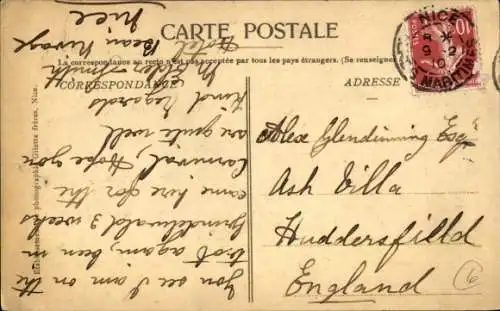 CARTE POSTALE
La correspondance au recto n'est pas acceptée par tous les pays étrangers. (Se renseigner
CORRESPONDANCE
ADRESSE
NICE
8 *
9 - 2
10
MARITIMES
10
Alex Glendinning Esqr
Ash Villa
Huddersfield
England
6
You see I am on the
trot again, been in
Grindelwald 3 weeks
came here for the
Carnival, Hope you
are quite well
Kind Regards
Smith
Hotel
Beau Rivage
Nice
photographie, Giletta frères, Nice.